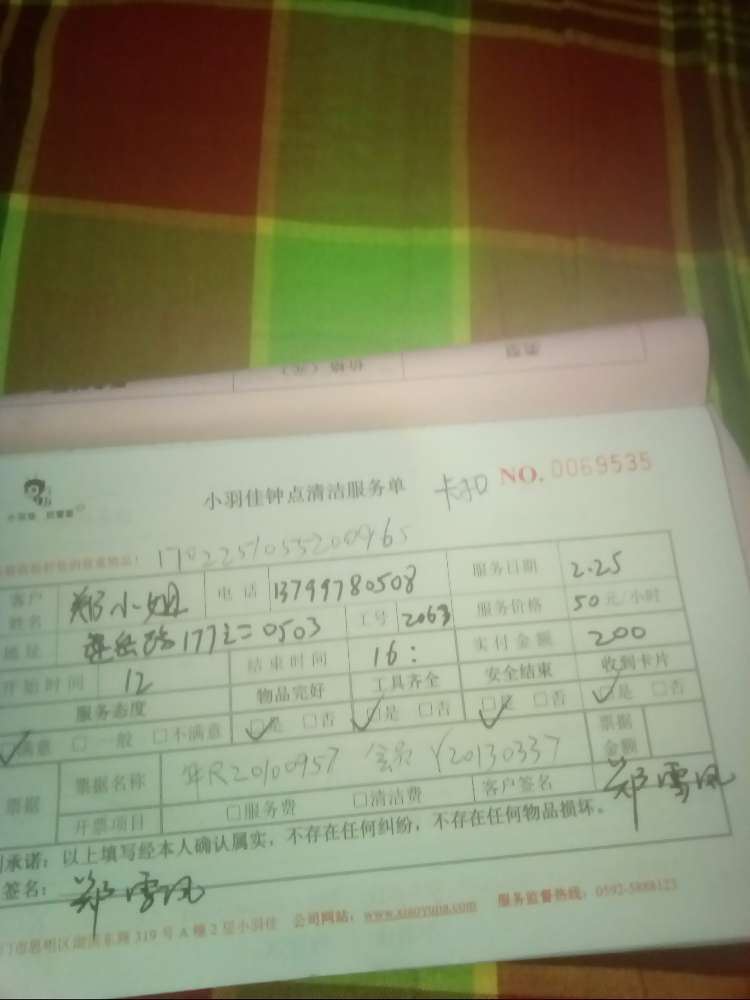 价格（元）
小羽佳钟点清洁服务单 卡扣 NO. 0069535
170225105520096
客户姓名 郑小姐 电话 13799780508 服务日期 2.25
地址 177 0503 工号 2063 服务价格 50元/小时
开始时间 12 结束时间 16: 实付金额 200
服务态度 物品完好 工具齐全 安全结束 收到卡片
满意 □一般 □不满意 □是 □否 □是 □否 □是 □否 □是 □否
票据 票据名称 R20100957 Y20130337 票据金额
开票项目 □服务费 □清洁费 客户签名 郑雪凤
承诺：以上填写经本人确认属实，不存在任何纠纷，不存在任何物品损坏。
签名：郑雪凤
门市思明区湖滨东路319号A幢2层小羽佳 公司网站：www.xiaoyujia.com 服务监督热线：0592-5888123